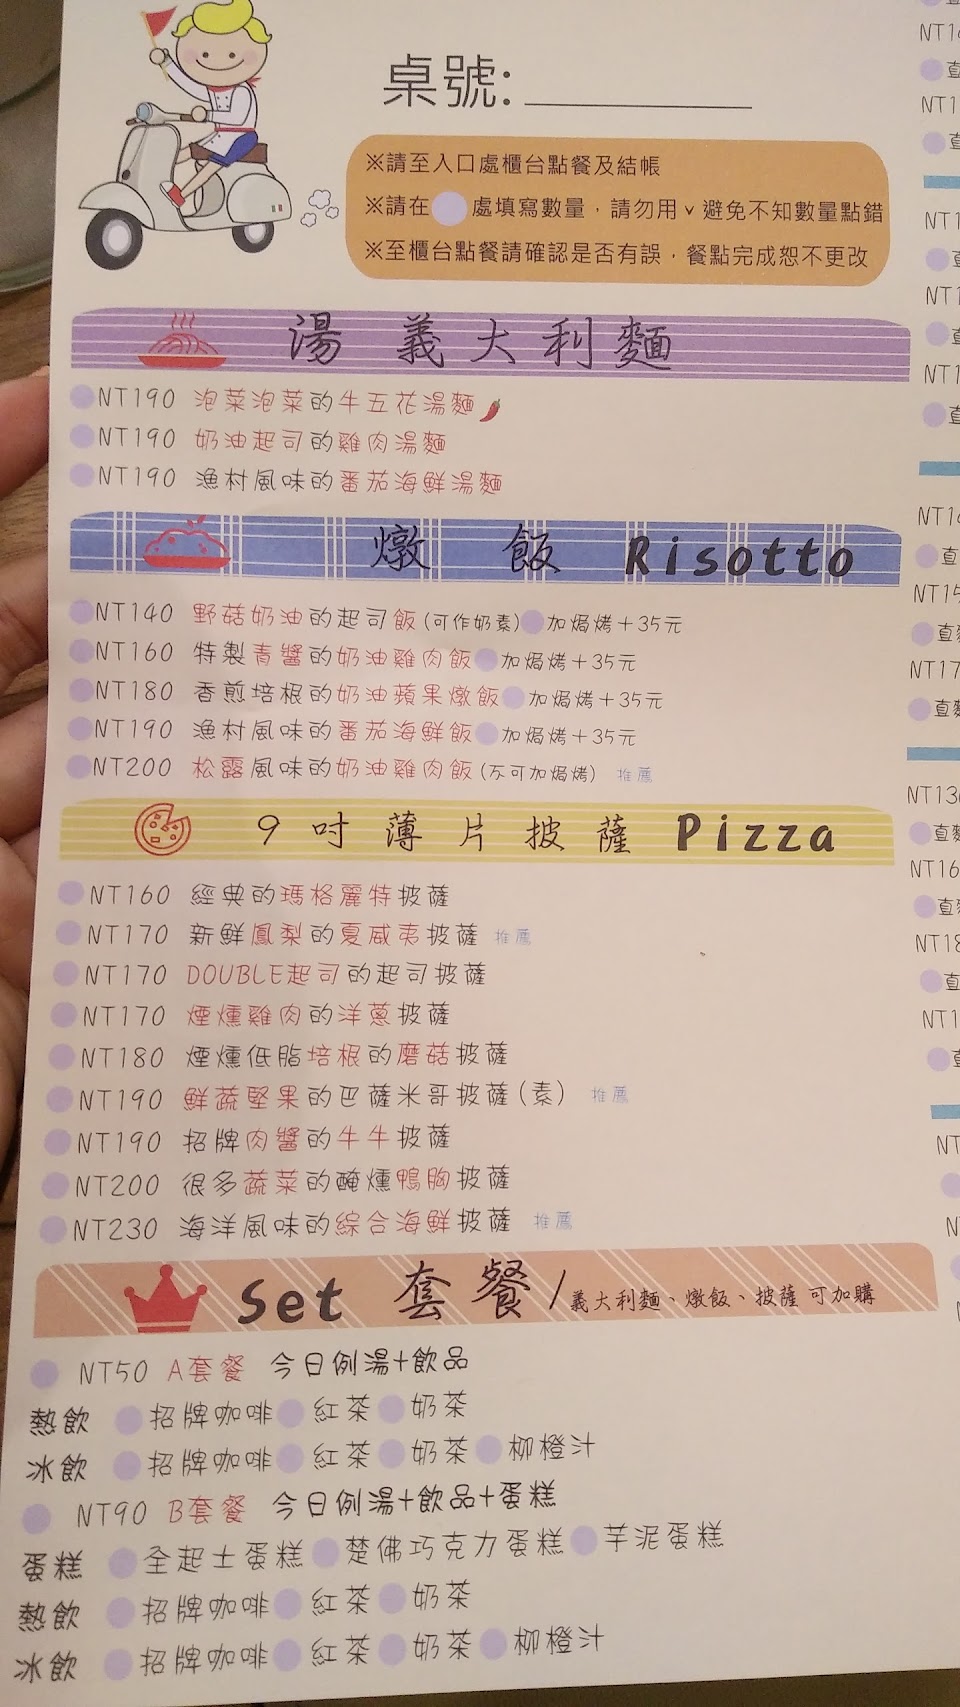 桌號:
※請至入口處櫃台點餐及結帳
※請在 處填寫數量，請勿用ˇ避免不知數量點錯
※至櫃台點餐請確認是否有誤，餐點完成恕不更改
湯 義大利麵
NT190 泡菜泡菜的牛五花湯麵
NT190 奶油起司的雞肉湯麵
NT190 漁村風味的番茄海鮮湯麵
燉 飯 Risotto
NT140 野菇奶油的起司飯(可作奶素) 加焗烤+35元
NT160 特製青醬的奶油雞肉飯 加焗烤+35元
NT180 香煎培根的奶油蘋果燉飯 加焗烤+35元
NT190 漁村風味的番茄海鮮飯 加焗烤+35元
NT200 松露風味的奶油雞肉飯(不可加焗烤) 推薦
9吋薄片披薩 Pizza
NT160 經典的瑪格麗特披薩
NT170 新鮮鳳梨的夏威夷披薩 推薦
NT170 DOUBLE起司的起司披薩
NT170 煙燻雞肉的洋蔥披薩
NT180 煙燻低脂培根的磨菇披薩
NT190 鮮蔬堅果的巴薩米哥披薩(素) 推薦
NT190 招牌肉醬的牛牛披薩
NT200 很多蔬菜的醃燻鴨胸披薩
NT230 海洋風味的綜合海鮮披薩 推薦
Set 套餐/義大利麵、燉飯、披薩 可加購
NT50 A套餐 今日例湯+飲品
熱飲 招牌咖啡 紅茶 奶茶
冰飲 招牌咖啡 紅茶 奶茶 柳橙汁
NT90 B套餐 今日例湯+飲品+蛋糕
蛋糕 全起士蛋糕 楚佛巧克力蛋糕 芋泥蛋糕
熱飲 招牌咖啡 紅茶 奶茶
冰飲 招牌咖啡 紅茶 奶茶 柳橙汁